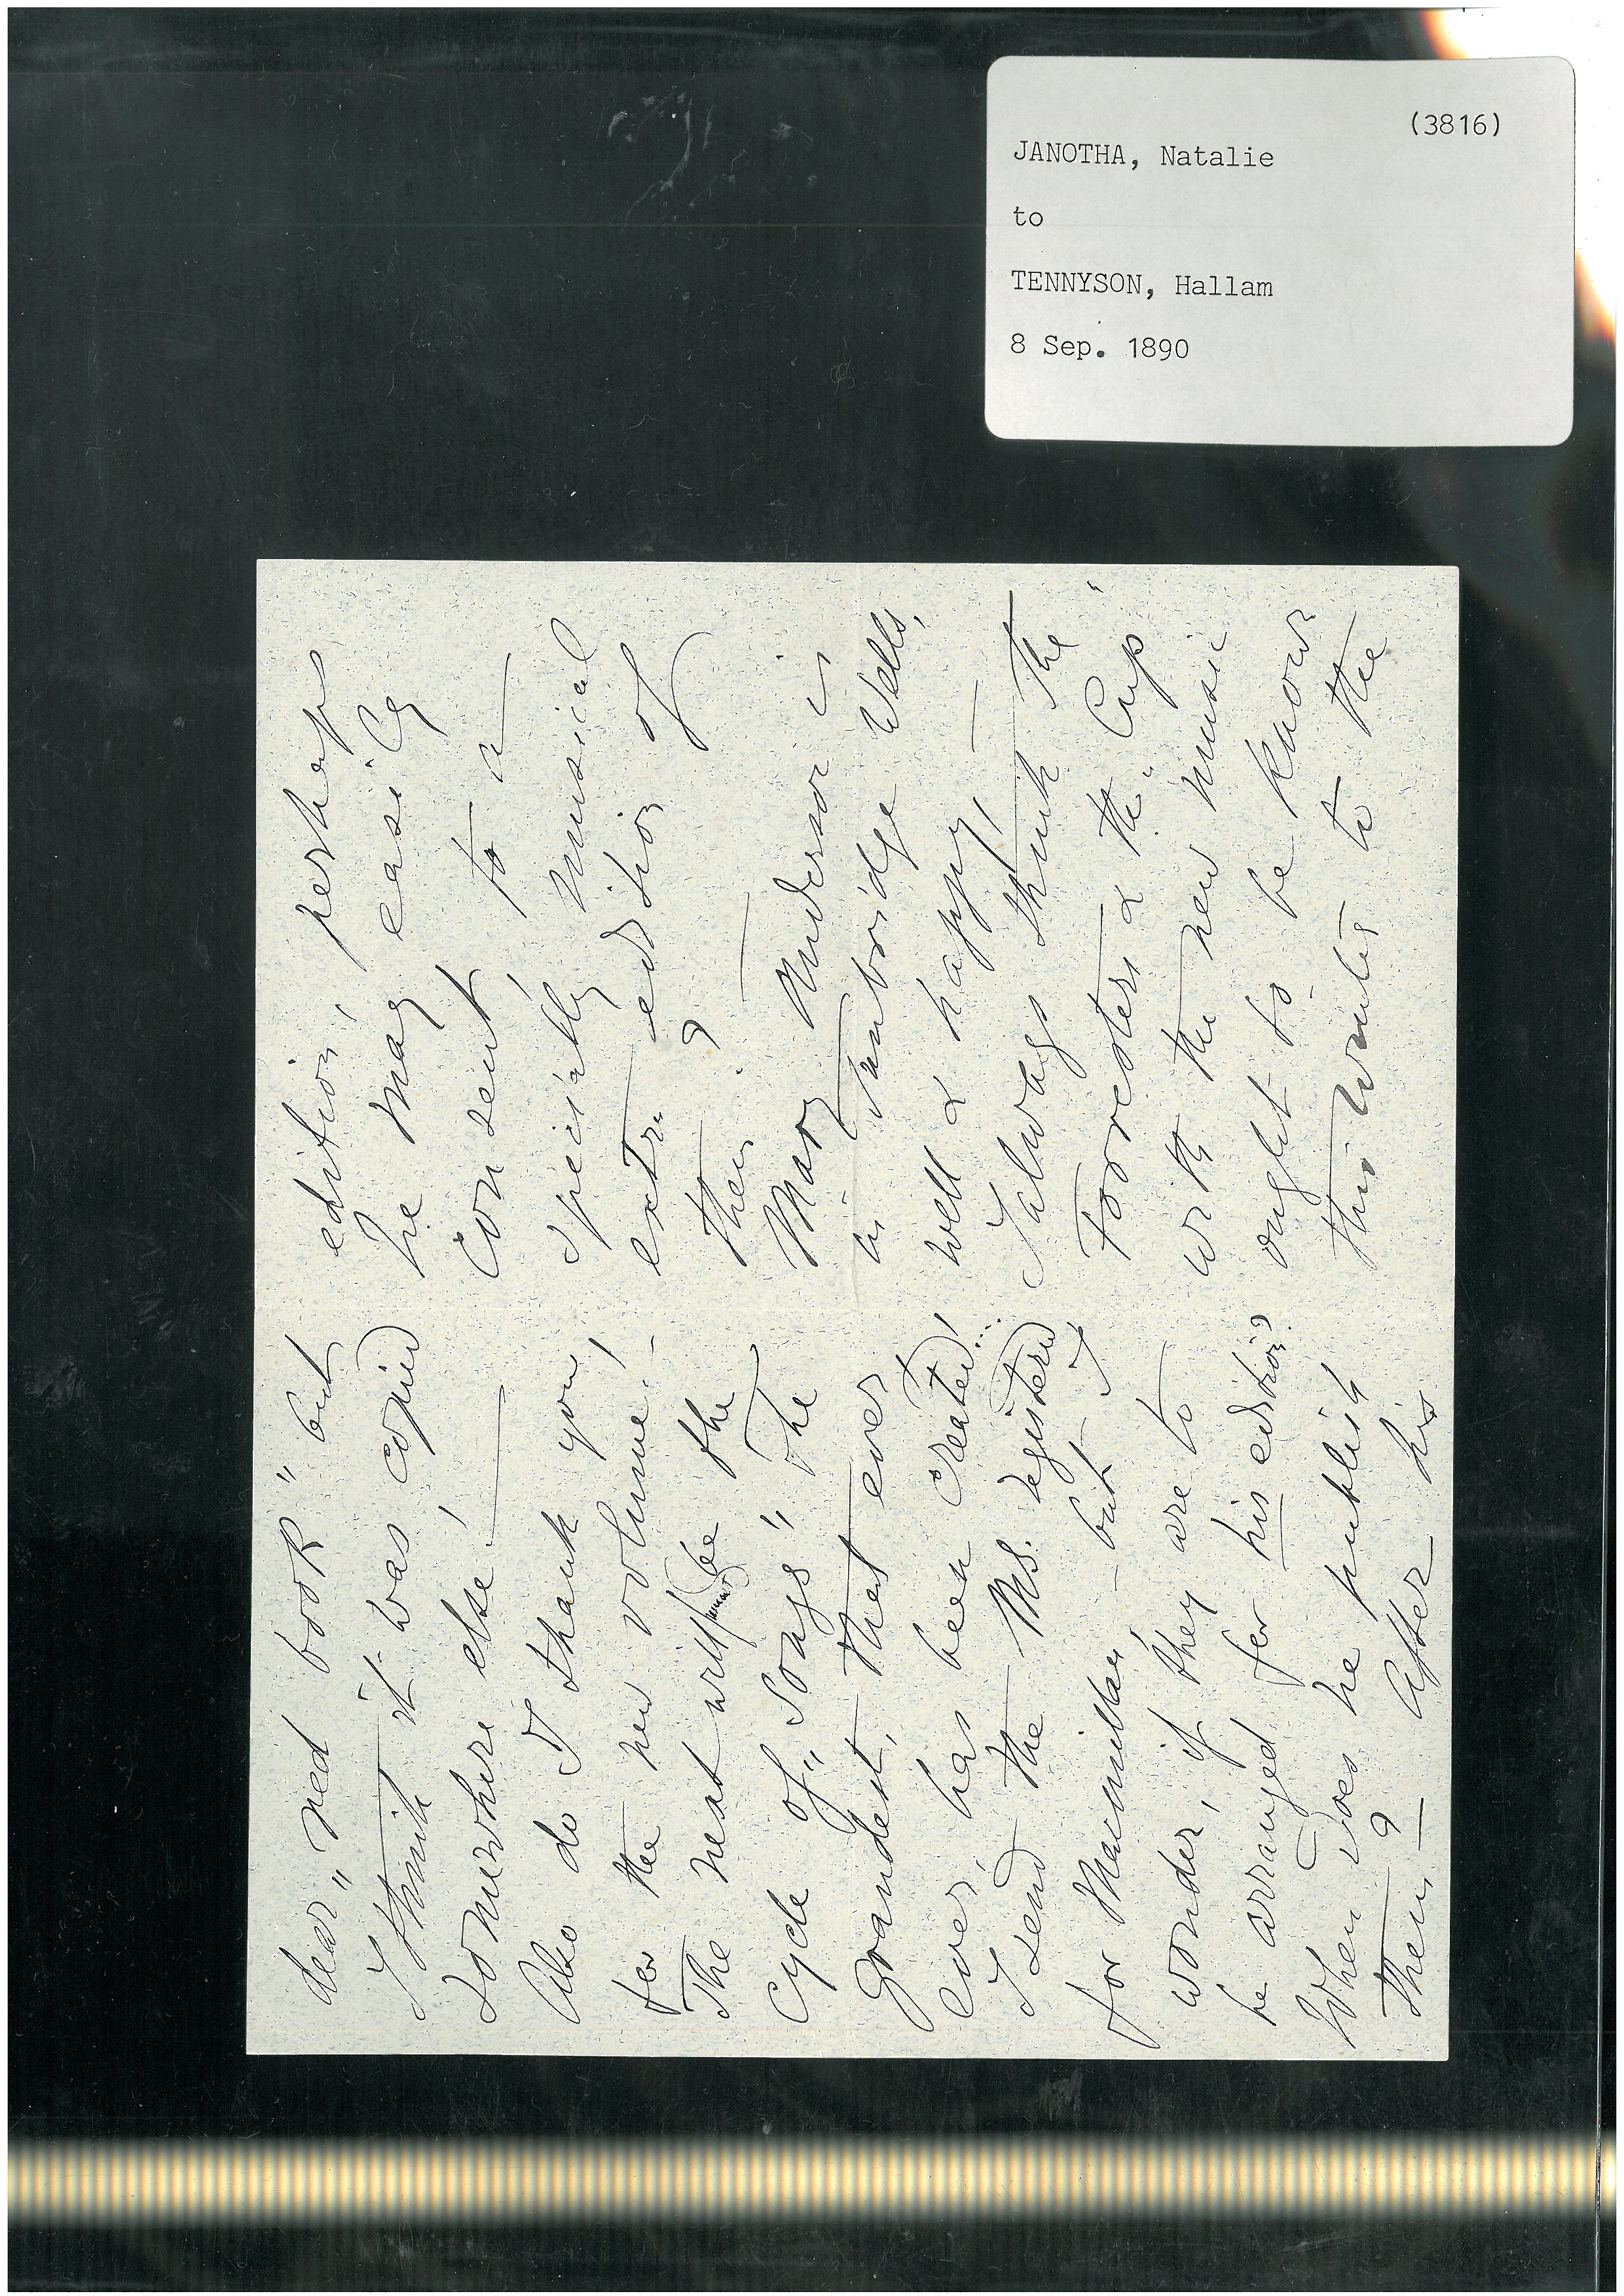 (3816)
JANOTHA, Natalie
to
TENNYSON, Hallam
8 Sep. 1890
dear „red book" but
I think it was copied
somewhere else!
Also do I thank you
for the new volume! -
The next will (must) be the
Cycle of „Songs" The
grandest, that ever
ever has been created!...
I send the Ms. registered
for Macmillan - but I
wonder, if they are to
be arranged for his edition?
When does he publish
them? - After his
edition, perhaps
he may easily
consent to a
specially musical
extra edition of
them? -
Mary Anderson is
in Tunbridge Wells,
well & happy, -
I always think The
Foresters & the „Cup"
with the new music
ought to be known
this winter to the